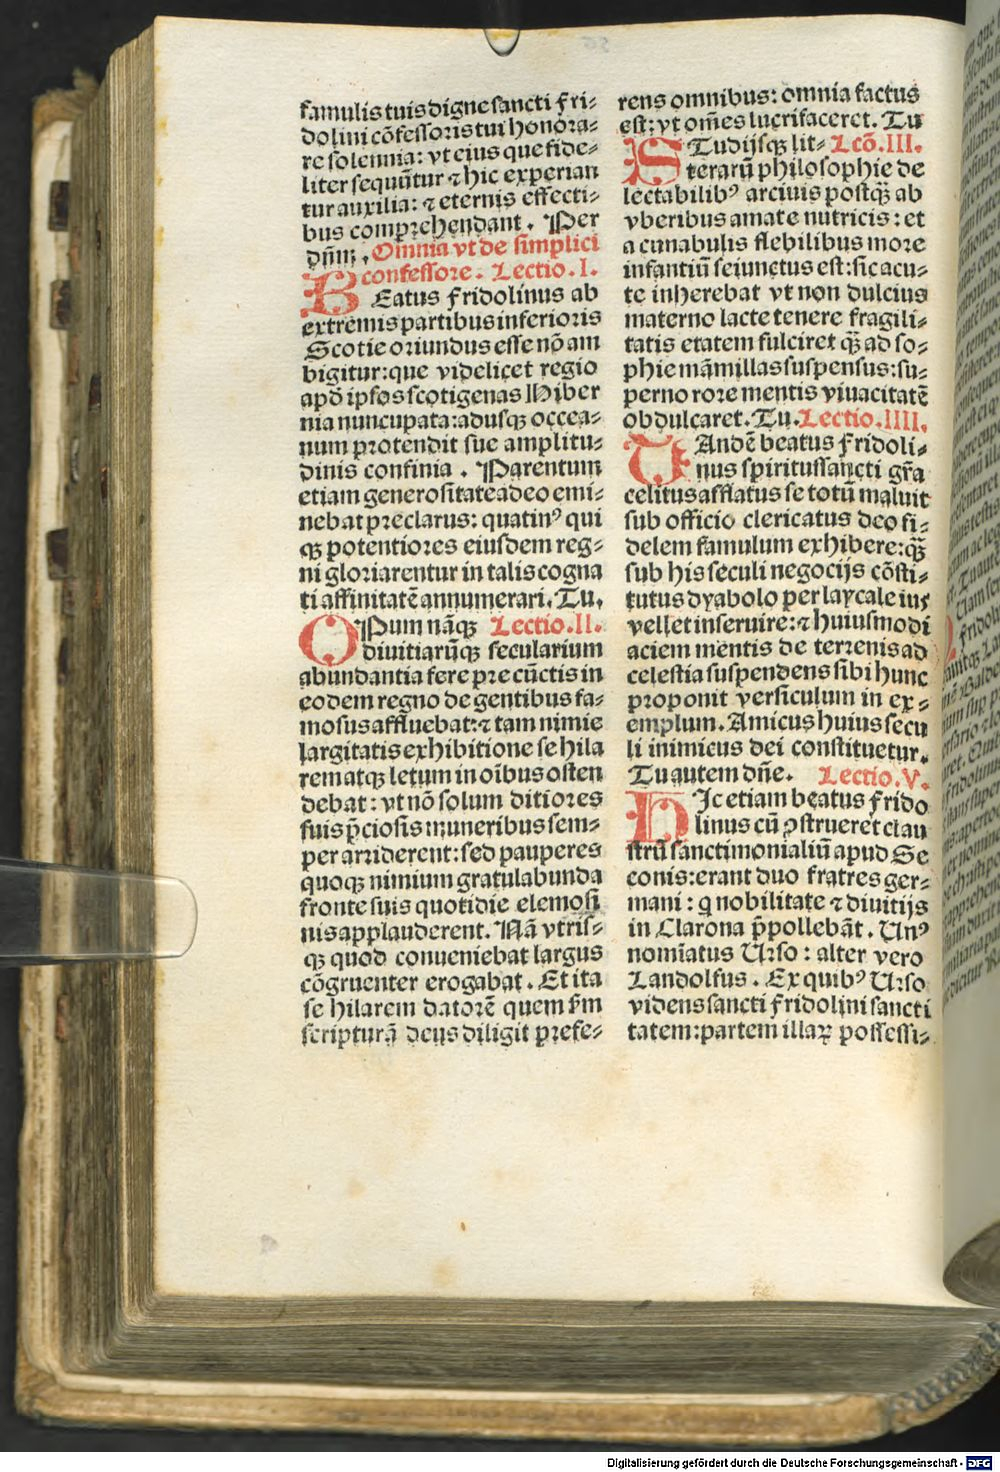 famulis tuis digne sancti fri⸗
dolini cōfessoris tui honora⸗
re solennia: vt eius que fide⸗
liter sequūtur ⁊ hic experian
tur auxilia: ⁊ eternis effecti⸗
bus comprehendant. Per
dn̄m. Omnia vt de simplici
confessore. Lectio.I.
BEatus fridolinus ab
extremis partibus inferioris
Scotie oriundus esse nō am
bigitur: que videlicet regio
apd̄ ipsos scotigenas Hiber
nia nuncupata: adusqꝫ occea⸗
num protendit sue amplitu⸗
dinis confinia. Parentum
etiam generositate adeo emi⸗
nebat preclarus: quatinꝰ qui
qꝫ potentiores eiusdem reg⸗
ni gloriarentur in talis cogna
ti affinitatē annumerari. Tu.
OPum nāqꝫ Lectio.II.
diuitiarūqꝫ secularium
abundantia fere pre cūctis in
eodem regno de gentibus fa⸗
mosus affluebat: ⁊ tam nimie
largitatis exhibitione se hila
rem atqꝫ letum in oībus osten
debat: vt nō solum ditiores
suis p̄ciosis muneribus sem⸗
per arriderent: sed pauperes
quoqꝫ nimium gratulabunda
fronte suis quotidie elemosi
nis applauderent. Nā vtris⸗
qꝫ quod conueniebat largus
cōgruenter erogabat. Et ita
se hilarem datorē quem s̄m
scripturā deus diligit prefe⸗
rens omnibus: omnia factus
est: vt om̄es lucrifaceret. Tu
STudijsqꝫ lit⸗ Lcō.III.
terarū philosophie de
lectabilibꝰ arciuis postqꝫ̄ ab
vberibus amate nutricis: et
a cunabulis flebilibus more
infantiū seiunctus est: sic acu⸗
te inherebat vt non dulcius
materno lacte tenere fragili⸗
tatis etatem fulciret qꝫ̄ ad so⸗
phie māmillas suspensus: su⸗
perno rore mentis viuacitatē
obdulcaret. Tu. Lectio.IIII.
TAndē beatus fridoli⸗
nus spiritussancti gr̄a
celitus afflatus se totū maluit
sub officio clericatus deo fi⸗
delem famulum exhibere: qꝫ̄
sub his seculi negocijs cōsti⸗
tutus dyabolo per laycale ius
vellet inseruire: ⁊ huiusmodi
aciem mentis de terrenis ad
celestia suspendens sibi hunc
proponit versiculum in ex⸗
emplum. Amicus huius secu
li inimicus dei constituetur.
Tu autem dn̄e. Lectio.V.
HIc etiam beatus frido
linus cū ꝯstrueret clau
strū sanctimonialiū apud Se
conis: erant duo fratres ger⸗
mani: q nobilitate ⁊ diuitijs
in Clarona p̄pollebāt. Vnꝰ
nomīatus Urso: alter vero
Landolfus. Ex quibꝰ Urso
videns sancti fridolini sancti
tatem: partem illaꝝ possessi⸗
Digitalisierung gefördert durch die Deutsche Forschungsgemeinschaft - DFG